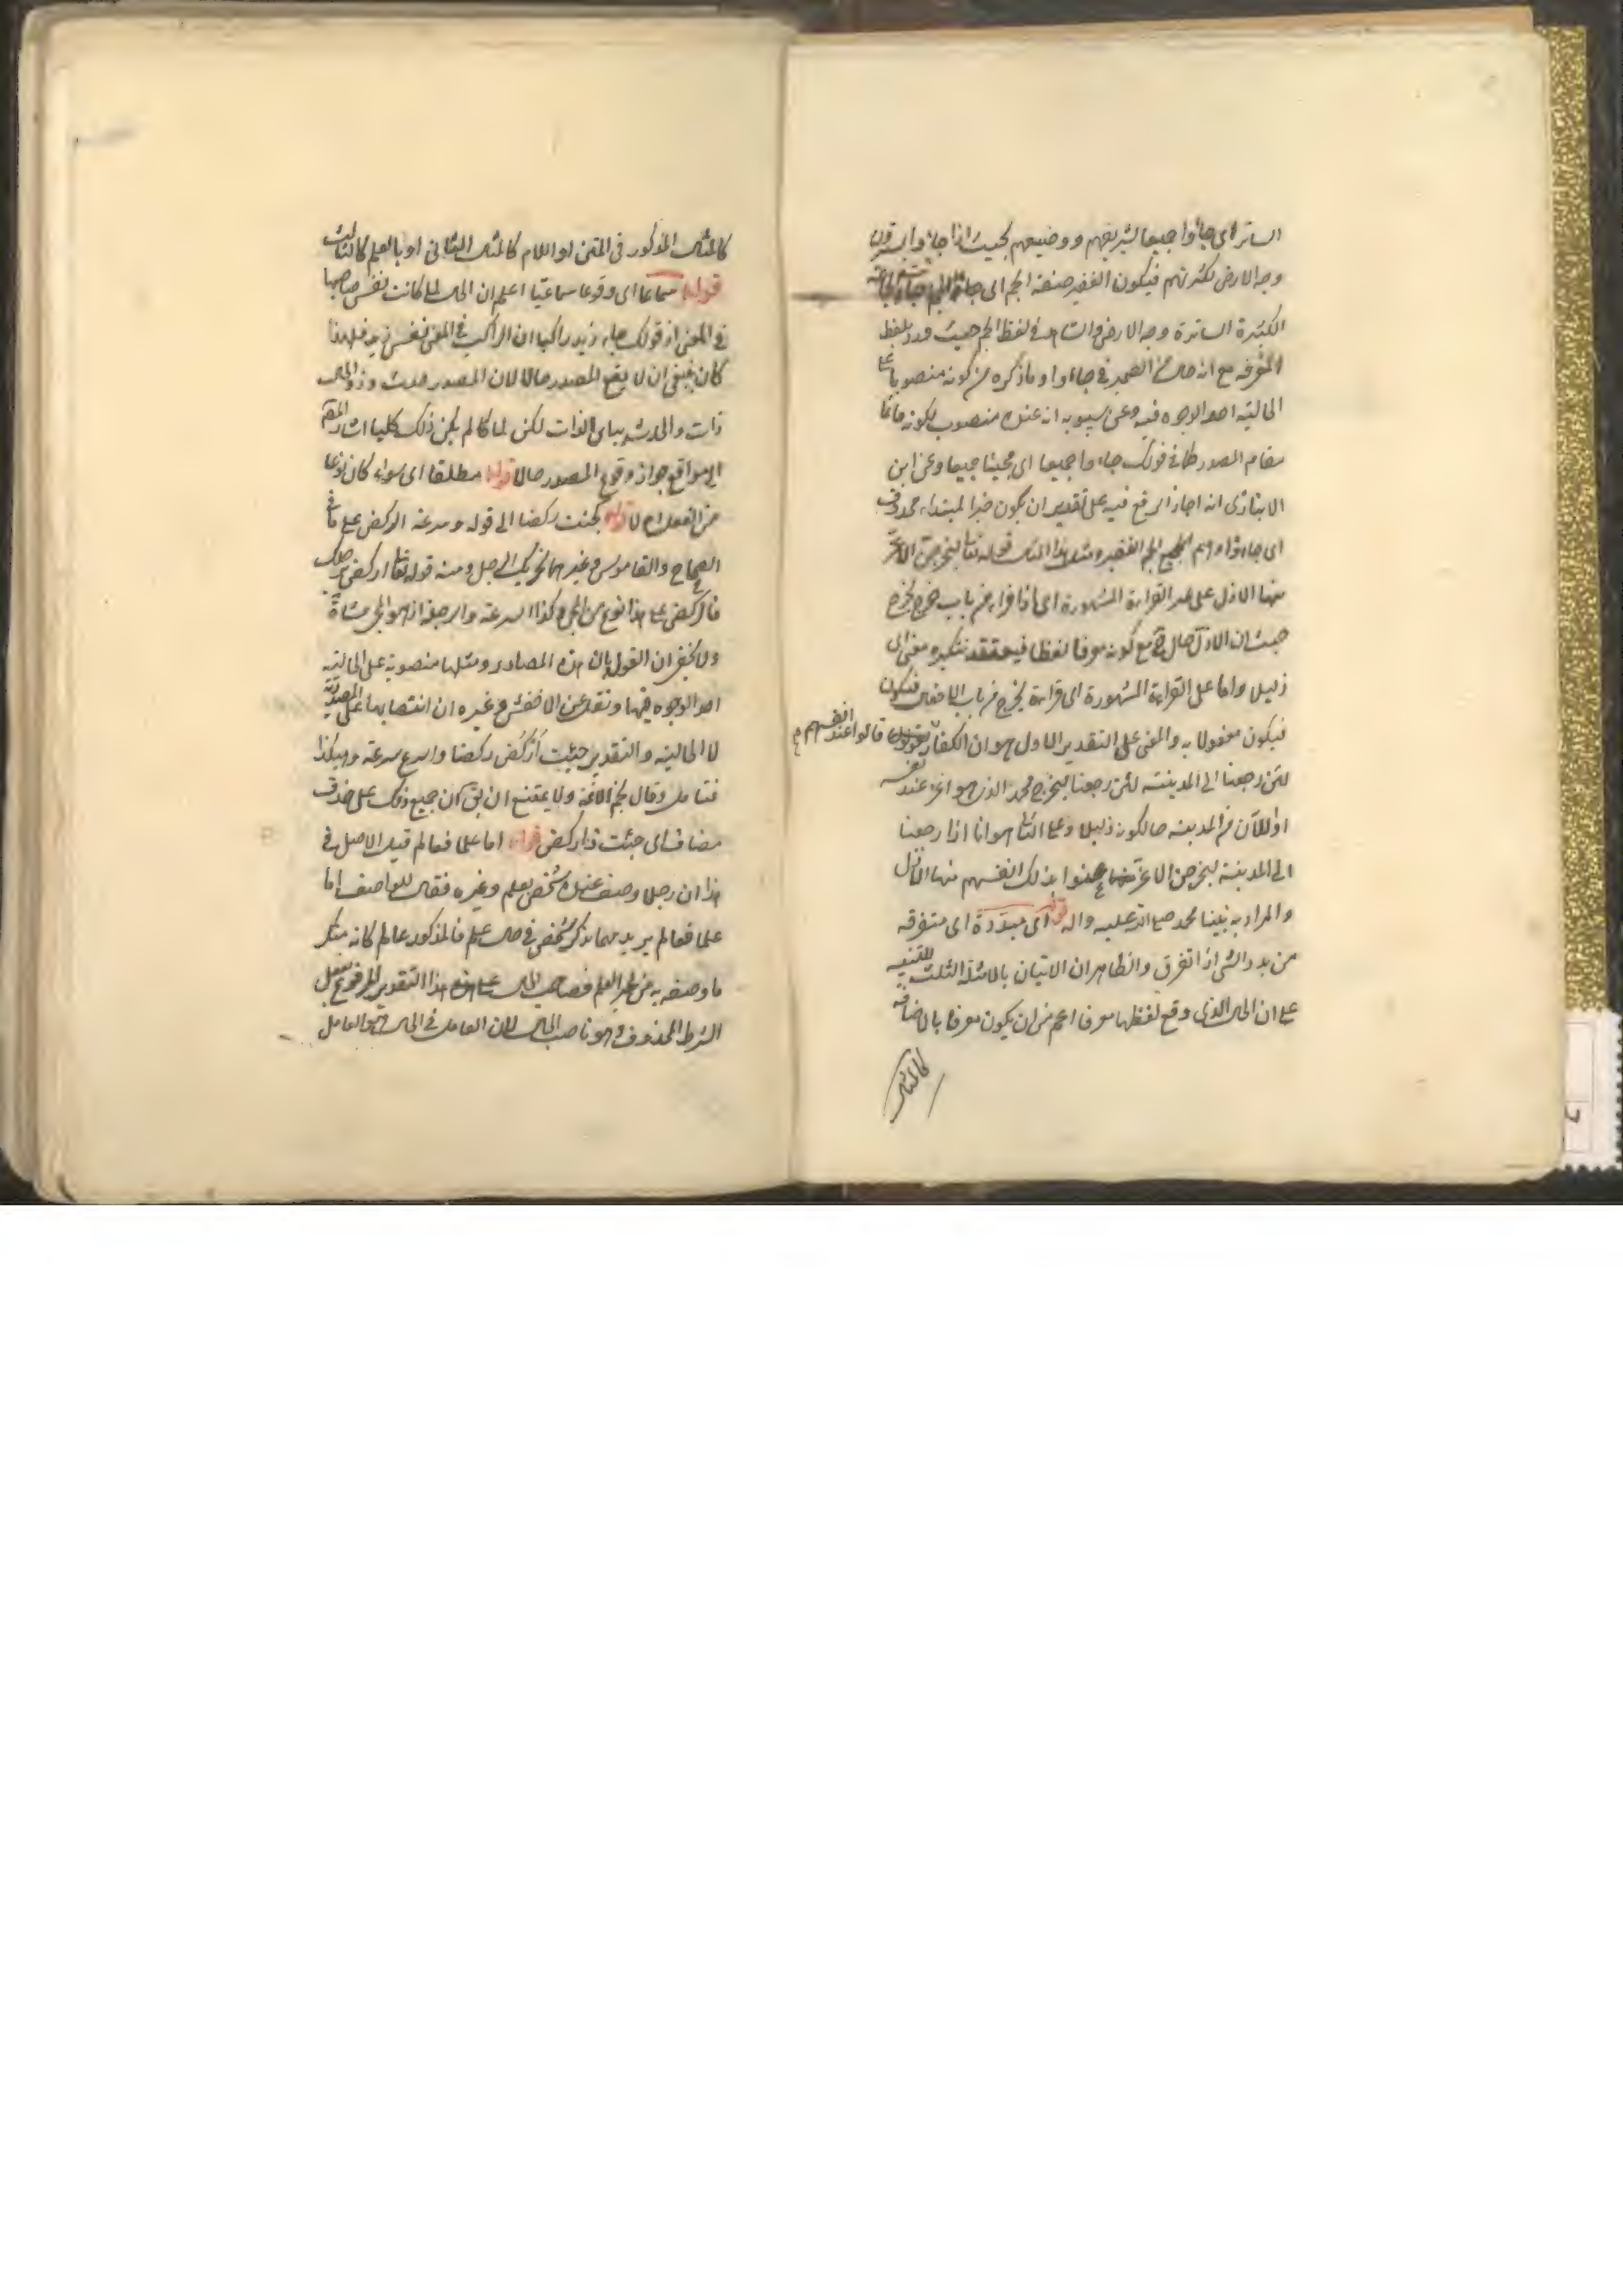 الساتر اى جاؤا جميعا لشريفهم ووضيعهم بحيث اذا جاؤا يسترون
وجه الارض لكثرتهم فيكون الغفير صفة الجم اى
الكثيرة الساترة وجه الارض والشاهد فى لفظ الجم حيث ورد بلفظ
المعرفة مع انه حال من الضمير فى جاءوا وما ذكره من كونه منصوبا على
الحالية احد الوجوه فيه وعن سيبويه انه عنده منصوب لكونه قائما
مقام المصدر كما فى قولك جاءوا جميعا اى مجيئا جميعا وعن ابن
الانبارى انه اجاز الرفع فيه على تقدير ان يكون خبرا لمبتداء محذوف
اى جاءوا وهم الجم الغفير ومثل هذا المثال قوله تعالى ليخرجن الاعز
منها الاذل على غير القراءة المشهورة اى اذا قراء من باب خرج يخرج
حيث ان الاذل حال مع كونه معرفا لفظا فيعتقد تنكيره معنى اى
ذليل واما على القراءة المشهورة اى قراءة يخرج من باب الافعال فيكون
فيكون مفعولا به والمعنى على التقدير الاول هو ان الكفار قالوا عند انفسهم
لئن رجعنا الى المدينة لئن رجعنا ليخرج محمد الذى هو اعز عند نفسه
او للآن من المدينة حالكونه ذليلا وعلى الثانى هو انا اذا رجعنا
الى المدينة ليخرجن الاعز عنوا بذلك انفسهم منها الاذل
والمراد به نبينا محمد صلى الله عليه واله قوله اى مبددة اى متفرقة
من بدد الشئ اذا تفرق والظاهر ان الاتيان بالامثلة الثلث للتنبيه
على ان الحال الذى وقع لفظها معرفا اعم من ان يكون معرفا بالاضافة
كالمثال
كالمثال المذكور فى المتن او اللام كالمثال الثانى او بالعلم كالثالث
قوله سماعا اى وقوعا سماعيا اعلم ان الحال لما كانت نفس صاحبها
فى المعنى اذ قولك جاء زيد راكبا ان الراكب فى المعنى نفس زيد فلهذا
كان ينبغى ان لا يقع المصدر حالا لان المصدر حدث وذو الحال
ذات والحدث يباين الذات لكن لما كا لم يكن ذلك كليا اشار المصنف
الى مواقع جواز وقوع المصدر حالا قوله مطلقا اى سواء كان نوعا
من الفعل ام لا قوله كجئت ركضا الى قوله وسرعة الركض على ما فى
الصحاح والقاموس وغيرهما تحريك الرجل ومنه قوله تعالى اركض برجلك
فالركض على هذا نوع من المجئ وكذا السرعة والرجلة اذ هو المجئ مشاة
ولا يخفى ان القول بان هذه المصادر ومثلها منصوبة على الحالية
احد الوجوه فيها ونقل عن الاخفش وغيره ان انتصابها على المصدرية
لا الحالية والتقدير جئت أركض ركضا واسرع سرعة وهكذا
فتامل وقال نجم الائمة ولا يمتنع ان يق ان جميع ذلك على حذف
مضاف اى جئت ذا ركض قوله اما علما فعالم قيل الاصل فى
هذا ان رجلا وصف عنده شخص بعلم وغيره فقال للواصف اما
علما فعالم يريد مهما يذكر شخص فى حال علم فالمذكور عالم كانه منكر
ما وصفه به من غير العلم فصاحب الحال على هذا التقدير المرفوع بفعل
الشرط المحذوف وهو ناصب الحال لان العامل فى الحال هو العامل